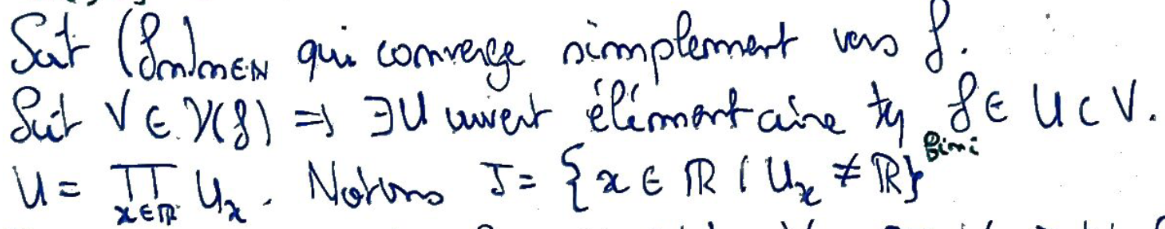 Soit (fn)n∈ℕ qui converge simplement vers f.
Soit V ∈ 𝒱(f) ⇒ ∃U ouvert élémentaire tq f ∈ U ⊂ V.
U = ∏_{x∈ℝ} U_x. Notons J = {x ∈ ℝ / U_x ≠ ℝ} fini